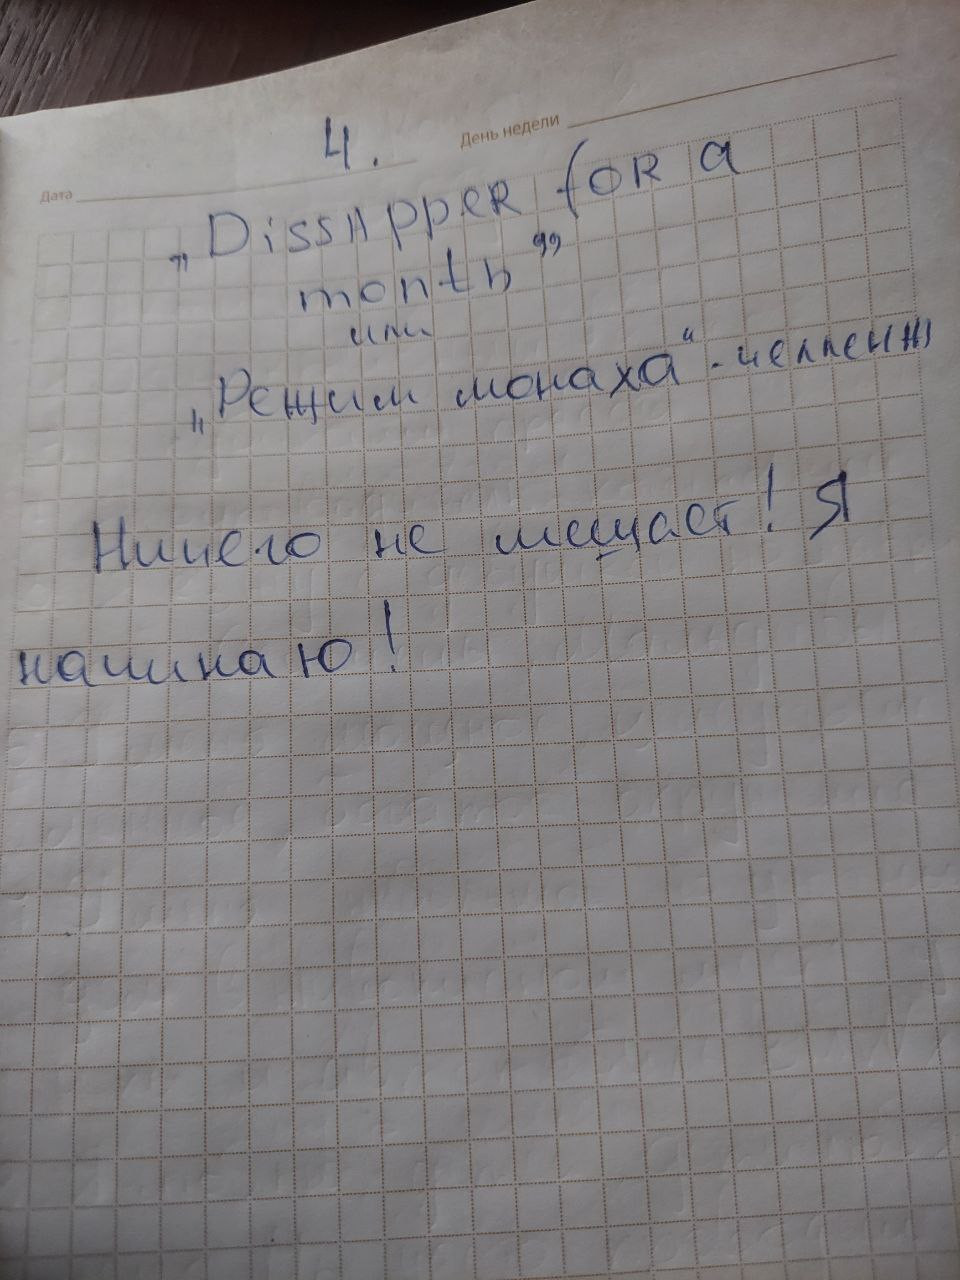 4.
День недели
Дата
„Dissapper for a
month”
или
„Режим монаха“-челленж
Ничего не мешает! Я
начинаю!